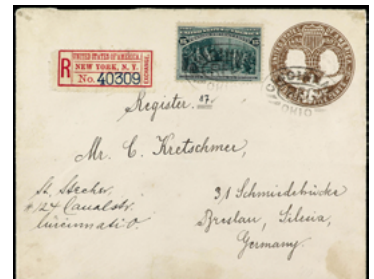 UNITED STATES OF AMERICA
R NEW YORK, N. Y. EXCHANGE.
No. 40309
OHIO
Register. 17.
Mr. C. Kretschmer,
St. Stecher.
124 Canalstr.
Cincinnati O.
3/1 Schmiedebrücke
Breslau, Silesia,
Germany.